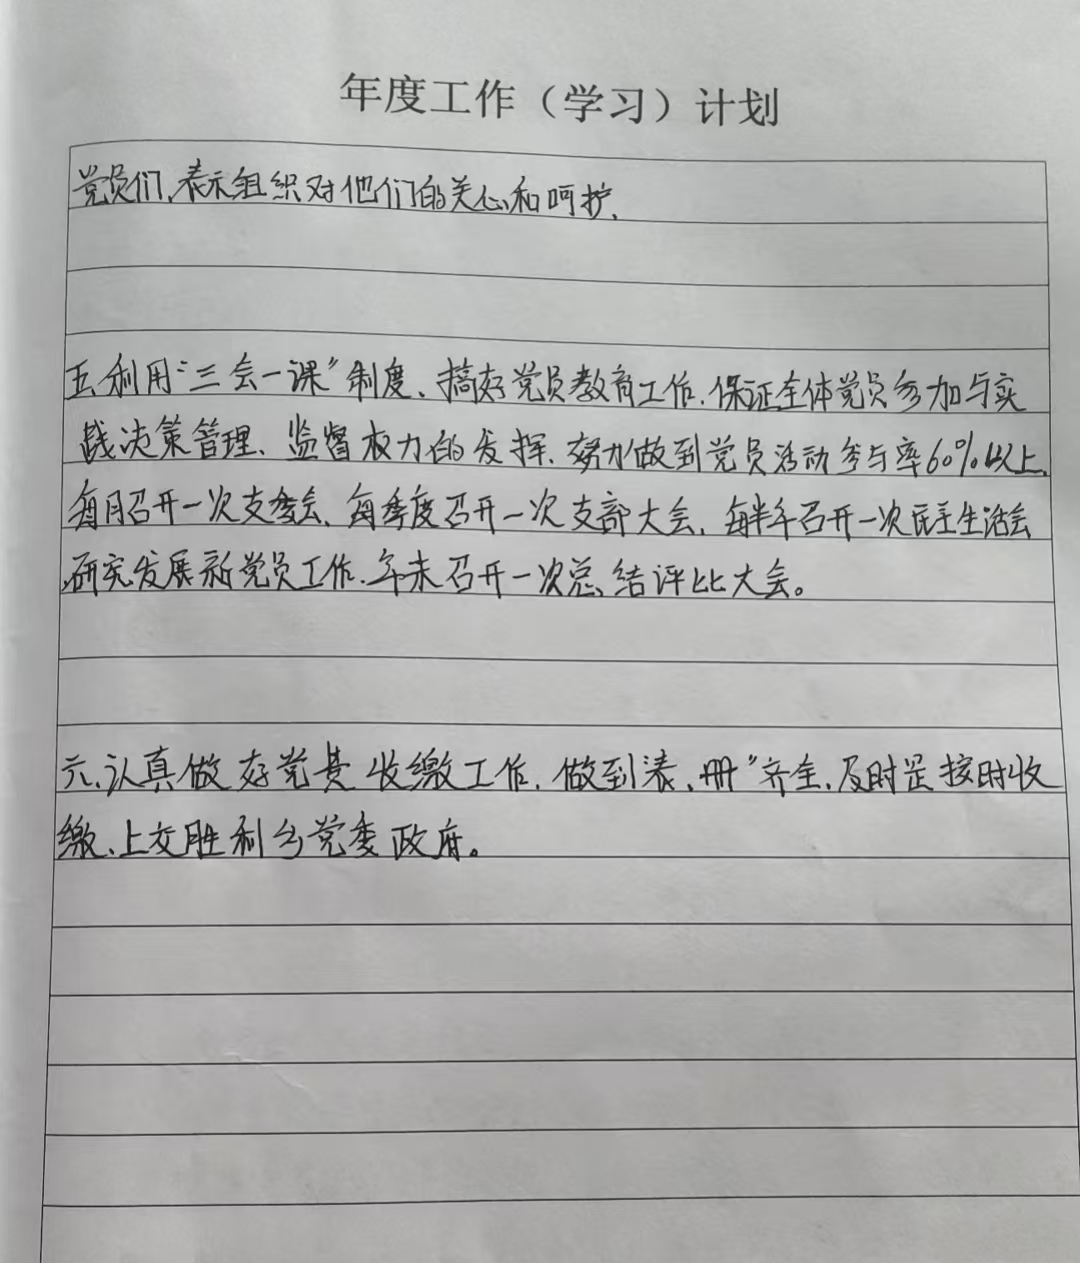 年度工作（学习）计划
党员们，表示组织对他们的关心和呵护，
五、利用“三会一课”制度、搞好党员教育工作，保证全体党员参加与实
践决策管理、监督权力的发挥，努力做到党员活动参与率60%以上，
每月召开一次支委会、每季度召开一次支部大会，每半年召开一次民主生活会
研究发展新党员工作，年末召开一次总结评比大会。
六、认真做好党费收缴工作，做到表、册”齐全，及时足按时收
缴、上交胜利乡党委政府。